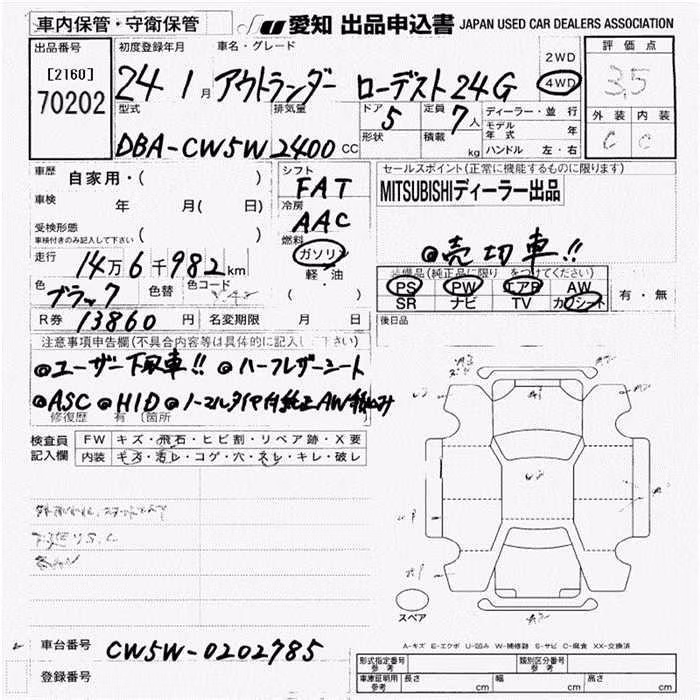 車内保管・守衛保管
愛知 出品申込書 JAPAN USED CAR DEALERS ASSOCIATION
出品番号
[2160]
70202
初度登録年月 車名・グレード
24 1月 アウトランダー ローデスト24G
2WD
4WD
評価点
3.5
外装 内装
C C
型式 排気量
DBA-CW5W 2400 CC
ドア 定員
5 7人
形状 積載
kg
ディーラー・並行
モデル年式 年
ハンドル 左・右
車歴
自家用・( )
車検
年 月(日)
受検形態
車検付きのみ記入して下さい ( )
走行
14万6千982km
色 色替 色コード
ブラック
R券 13860円 名変期限 月 日
シフト
FAT
冷房
AAC
燃料
ガソリン
軽・油
( )
セールスポイント(正常に機能するものに限ります)
MITSUBISHIディーラー出品
◎売切車!!
装備品(純正品に限り をつけてください)
PS PW エアB AW
SR ナビ TV カワシート
有・無
後日品
注意事項申告欄(不具合内容等は具体的に記入して下さい)
◎ユーザー下取車!! ◎ハーフレザーシート
◎ASC ◎HID ◎ノーマルタイヤ付純正AW積込み
修復歴 有 〔箇所
検査員
記入欄
FW キズ・飛石・ヒビ割・リペア跡・X要
内装 キズ・汚レ・コゲ・穴・スレ・キレ・破レ
スペア
A-キズ E-エクボ U-凹み W-補修跡 S-サビ C-腐食 XX-交換済
車台番号 CW5W-0202785
登録番号
形式指定番号 参考 類別区分番号 参考
車庫証明用 参考 長さ cm 幅 cm 高さ cm